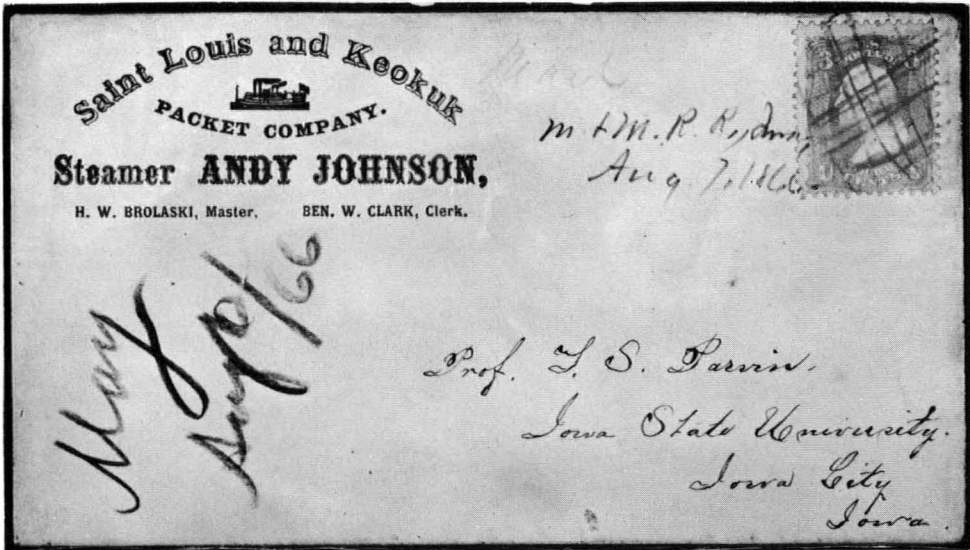 Saint Louis and Keokuk
PACKET COMPANY.
Steamer ANDY JOHNSON,
H. W. BROLASKI, Master. BEN. W. CLARK, Clerk.
M. & M. R. R.
Aug. 7, 1866.
Mary
Aug / 66
Prof. T. S. Parvin.
Iowa State University.
Iowa City
Iowa.